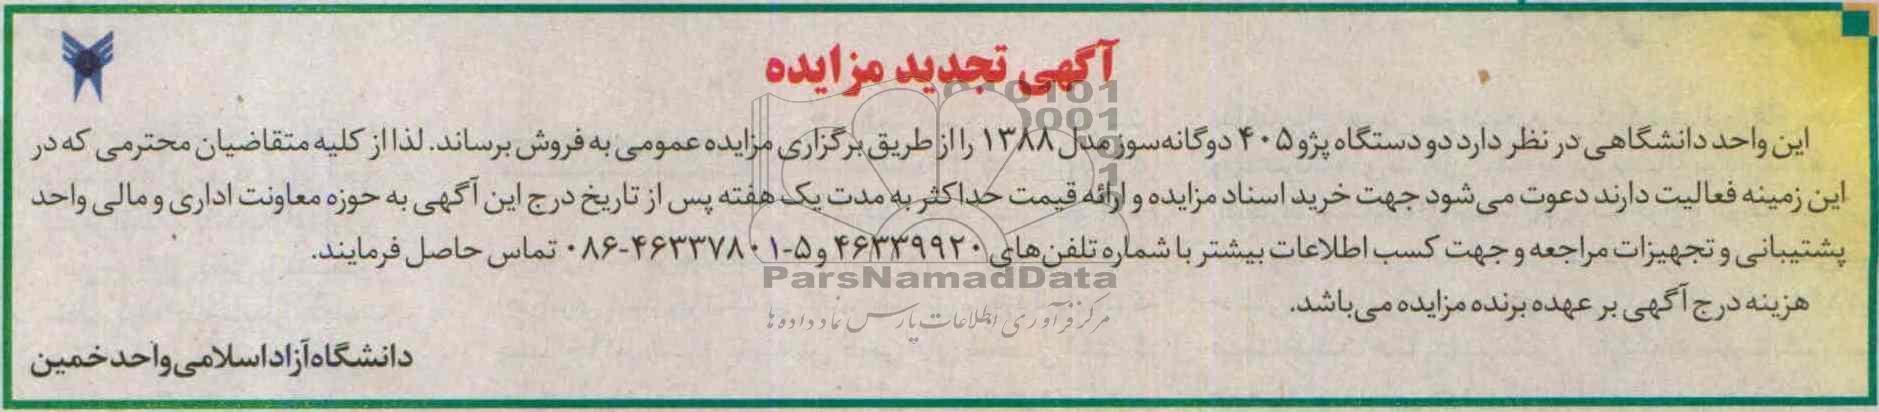 آگهی تجدید مزایده
این واحد دانشگاهی در نظر دارد دو دستگاه پژو ۴۰۵ دوگانه‌سوز مدل ۱۳۸۸ را از طریق برگزاری مزایده عمومی به فروش برساند. لذا از کلیه متقاضیان محترمی که در
این زمینه فعالیت دارند دعوت می‌شود جهت خرید اسناد مزایده و ارائه قیمت حداکثر به مدت یک هفته پس از تاریخ درج این آگهی به حوزه معاونت اداری و مالی واحد
پشتیبانی و تجهیزات مراجعه و جهت کسب اطلاعات بیشتر با شماره تلفن‌های ۴۶۳۳۹۹۲۰ و ۵-۰۸۶-۴۶۳۳۷۸۰۱ تماس حاصل فرمایند.
هزینه درج آگهی بر عهده برنده مزایده می‌باشد.
دانشگاه آزاد اسلامی واحد خمین
ParsNamadData
مرکز فرآوری اطلاعات پارس نماد داده ها